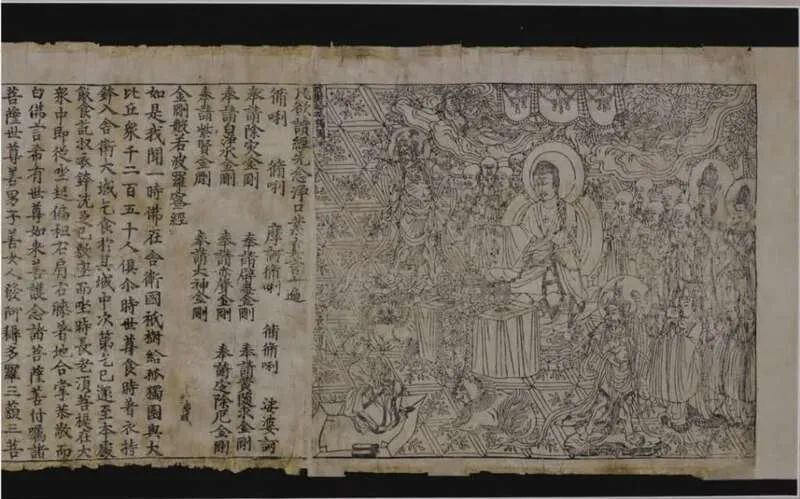 凡欲讀經先念淨口業真言一遍
脩唎 脩唎 摩訶脩唎 脩脩唎 娑婆訶
奉請除灾金剛 奉請辟毒金剛 奉請黃隨求金剛
奉請白淨水金剛 奉請赤聲金剛 奉請定除厄金剛
奉請紫賢金剛 奉請大神金剛
金剛般若波羅蜜經
如是我聞一時佛在舍衛國祇樹給孤獨園與大
比丘衆千二百五十人俱尒時世尊食時著衣持
鉢入舍衛大城乞食於其城中次第乞已還至本處
飯食訖收衣鉢洗足已敷座而坐時長老須菩提在大
衆中即從坐起偏袒右肩右膝著地合掌恭敬而
白佛言希有世尊如來善護念諸菩薩善付囑諸
菩薩世尊善男子善女人發阿耨多羅三藐三菩